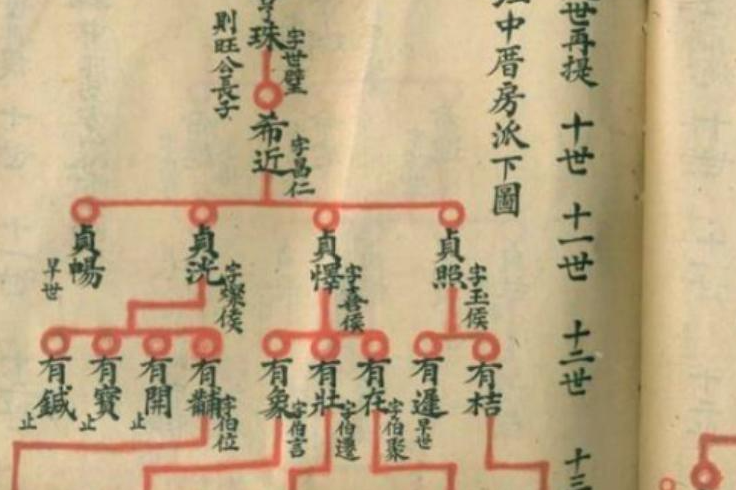 世再提
十世
十一世
十二世
十三
中厝房派下圖
珠
字世璧
則旺公長子
希近
字昌仁
貞照
字玉侯
貞懌
字善侯
貞洗
字燦侯
貞暢
早世
有桔
有遲
早世
有在
字伯聚
有壯
字伯邊
有象
字伯言
有
字伯位
有開
止
有寶
止
有鍼
止